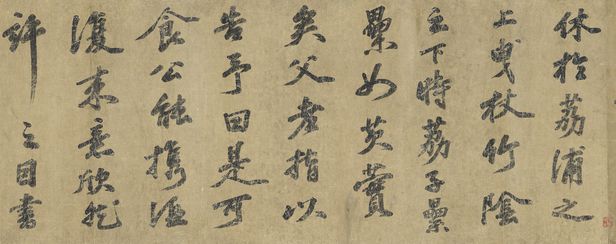 休於荔浦之
上曳杖竹陰
之下時荔子纍
纍如芡實
矣父老指以
告予曰是可
食公能攜酒
復來意欣然
許之因書